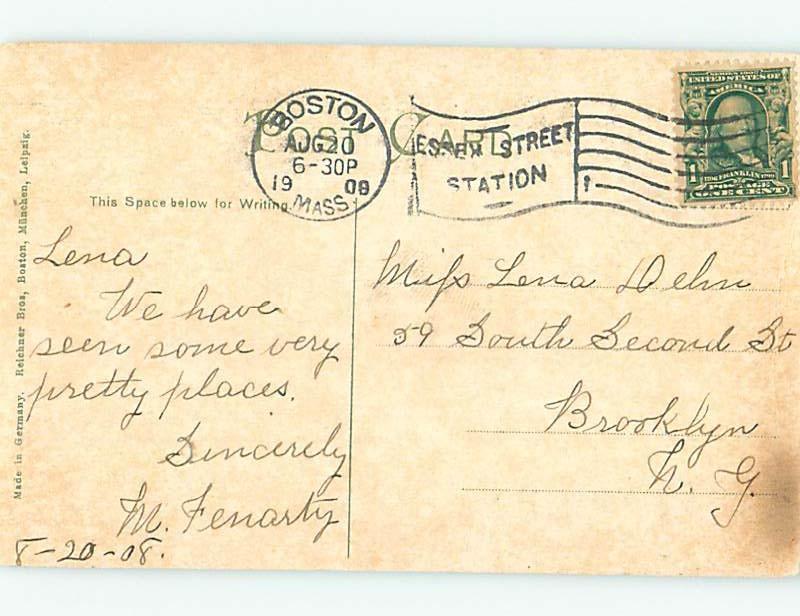 POST CARD
BOSTON
AUG 20
6-30P
19 08
MASS.
ESSEX STREET
STATION
1
SERIES 1902
UNITED STATES OF
AMERICA
FRANKLIN
1 POSTAGE 1
ONE CENT
This Space below for Writing.
Made in Germany. Reichner Bros, Boston, München, Leipzig.
Lena
We have
seen some very
pretty places.
Sincerely
M. Fenarty
8-20-08.
Miss Lena Dehn
59 South Second St
Brooklyn
N. Y.